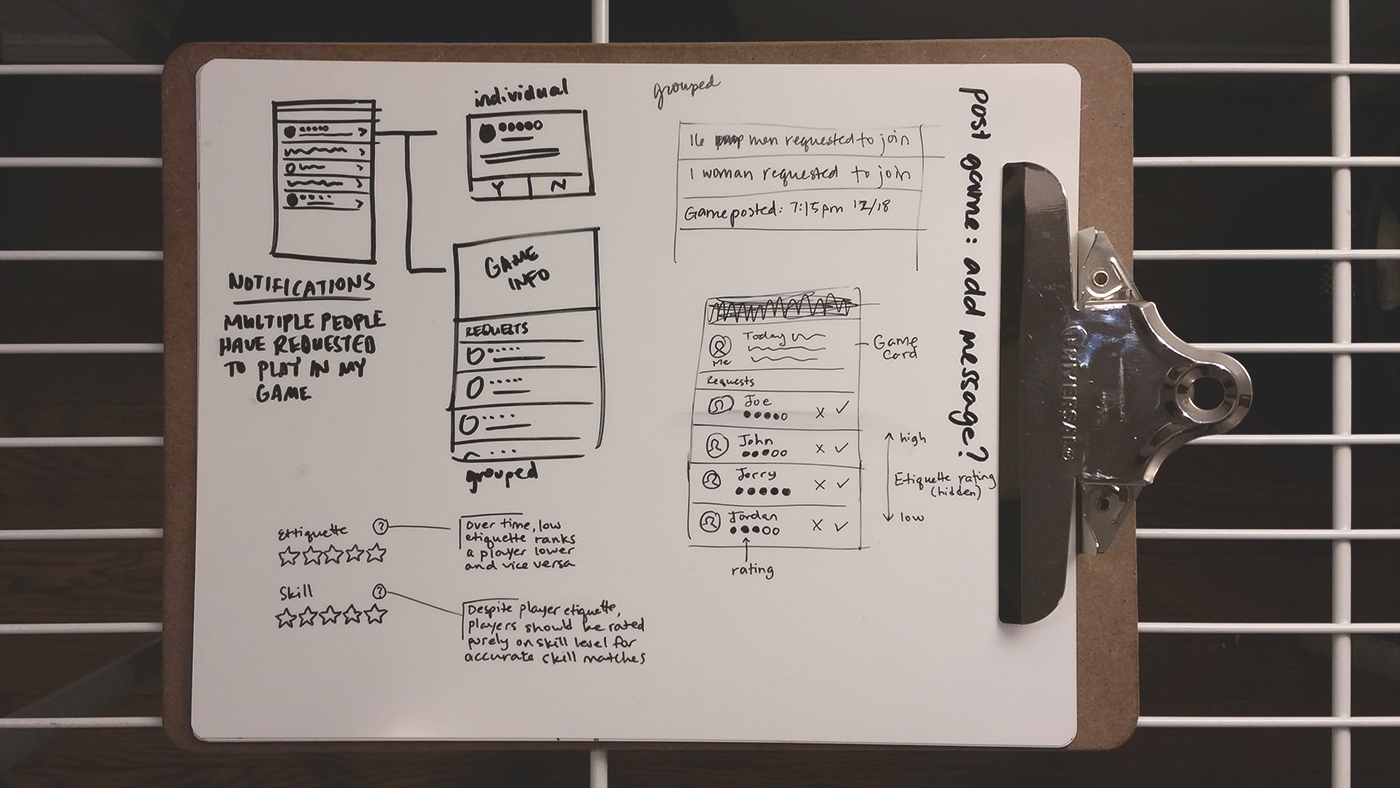 individual
Y N
NOTIFICATIONS
MULTIPLE PEOPLE
HAVE REQUESTED
TO PLAY IN MY
GAME
GAME
INFO
REQUESTS
grouped
grouped
16 men requested to join
1 woman requested to join
Game posted: 7:15pm 12/18
Today
Me
Game
Card
Requests
Joe
x ✓
John
x ✓
Jerry
x ✓
Jordan
x ✓
rating
high
Etiquette rating
(hidden)
low
post game: add message?
Ettiquette ?
Over time, low
etiquette ranks
a player lower
and vice versa
Skill ?
Despite player etiquette,
players should be rated
purely on skill level for
accurate skill matches